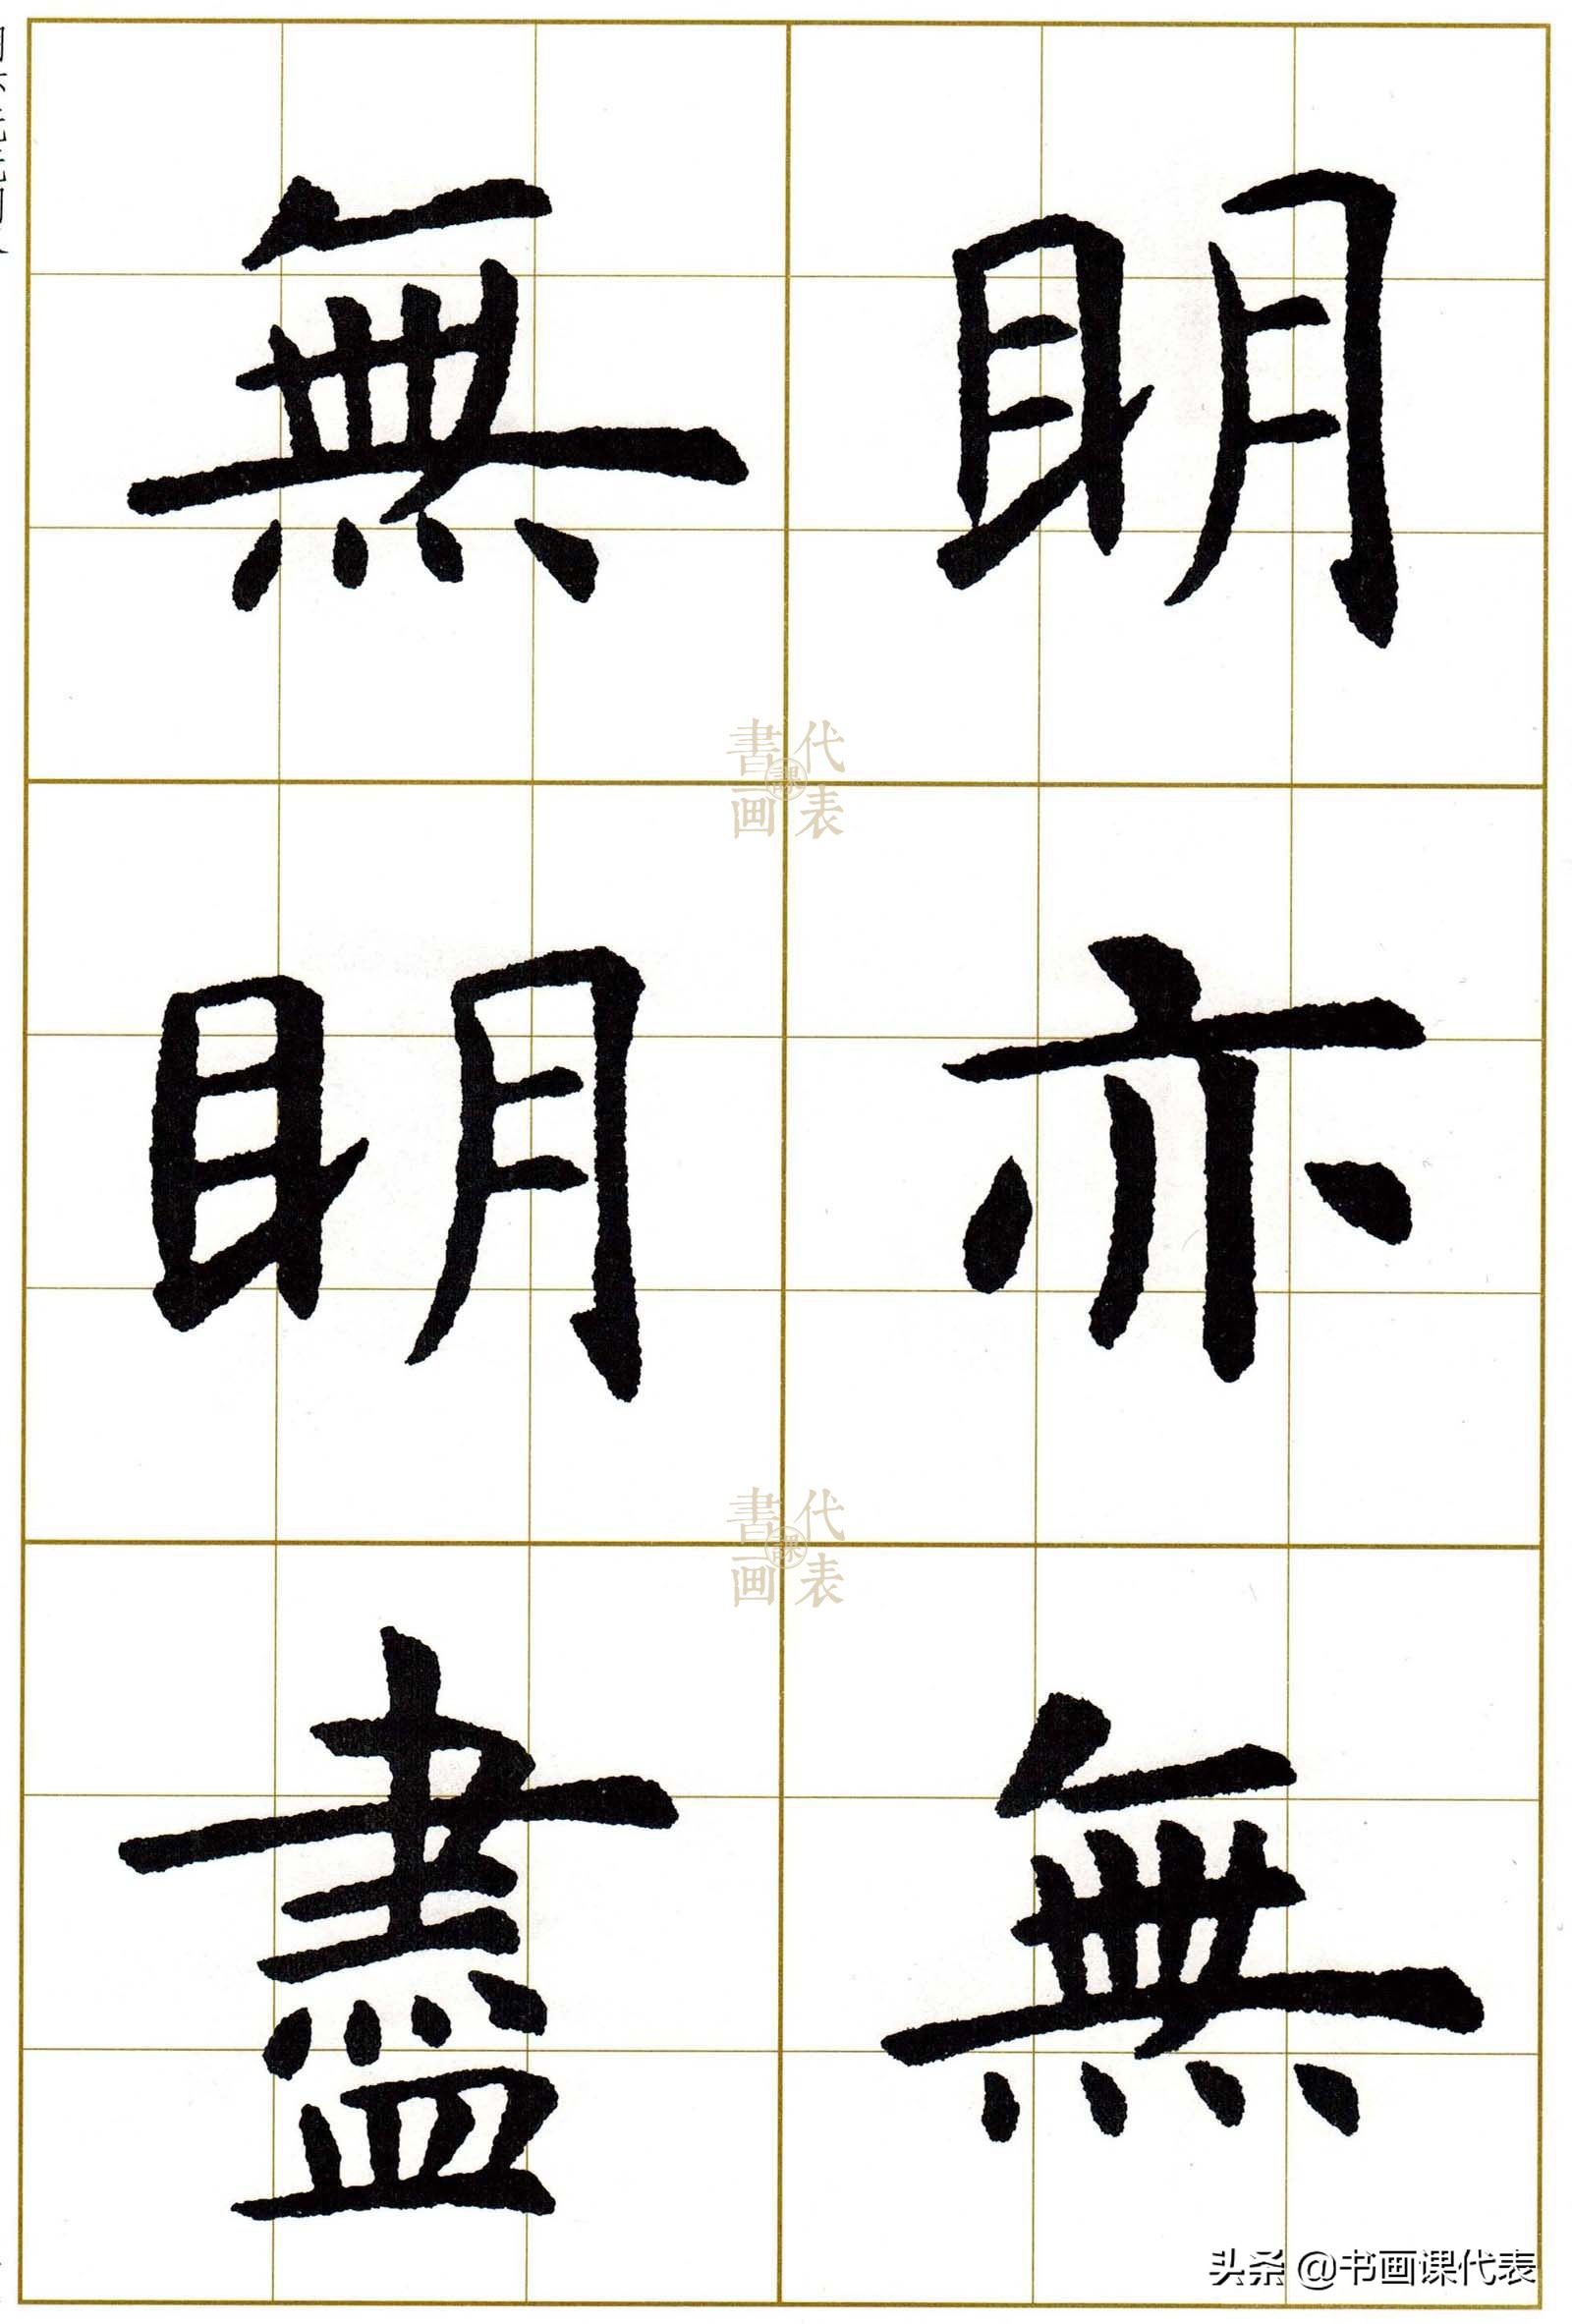 明亦無
無明盡
書画課代表
書画課代表
头条 @书画课代表